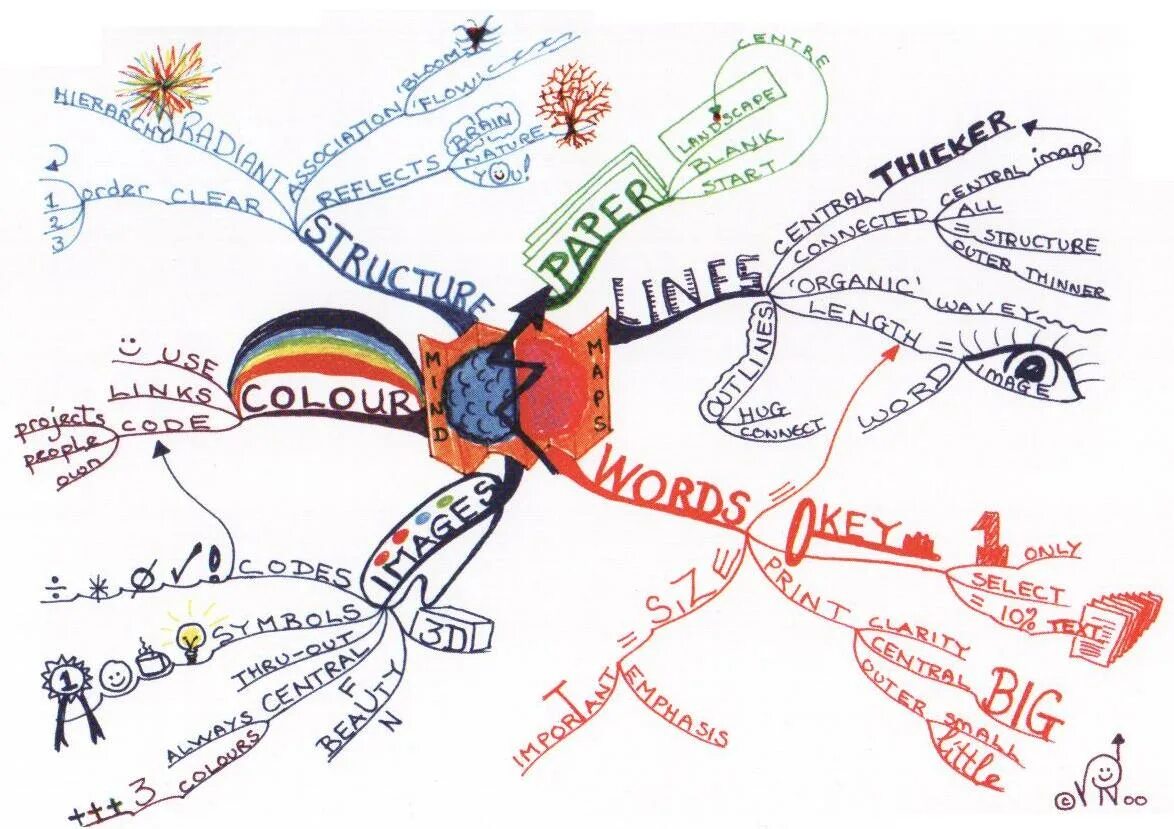 MIND
MAPS
PAPER
LANDSCAPE
BLANK
START
CENTRE
LINES
CENTRAL THICKER
CONNECTED
CENTRAL image
ALL
= STRUCTURE
OUTER THINNER
'ORGANIC'
WAVEY
LENGTH =
IMAGE
WORD
OUTLINES
HUG
CONNECT
WORDS
=
KEY
1 ONLY
SELECT
= 10% TEXT
PRINT
CLARITY
CENTRAL BIG
OUTER small
little
SIZE
=
IMPORTANT
EMPHASIS
IMAGES
3D
FUN
BEAUTY
CENTRAL
ALWAYS
COLOURS
+++ 3
THRU-OUT
SYMBOLS
1
CODES
÷ * Ø √ !
COLOUR
USE
LINKS
CODE
projects
people
own
STRUCTURE
CLEAR
order
1
2
3
RADIANT
HIERARCHY
ASSOCIATION
'BLOOM'
'FLOW'
REFLECTS
BRAIN
NATURE
YOU!